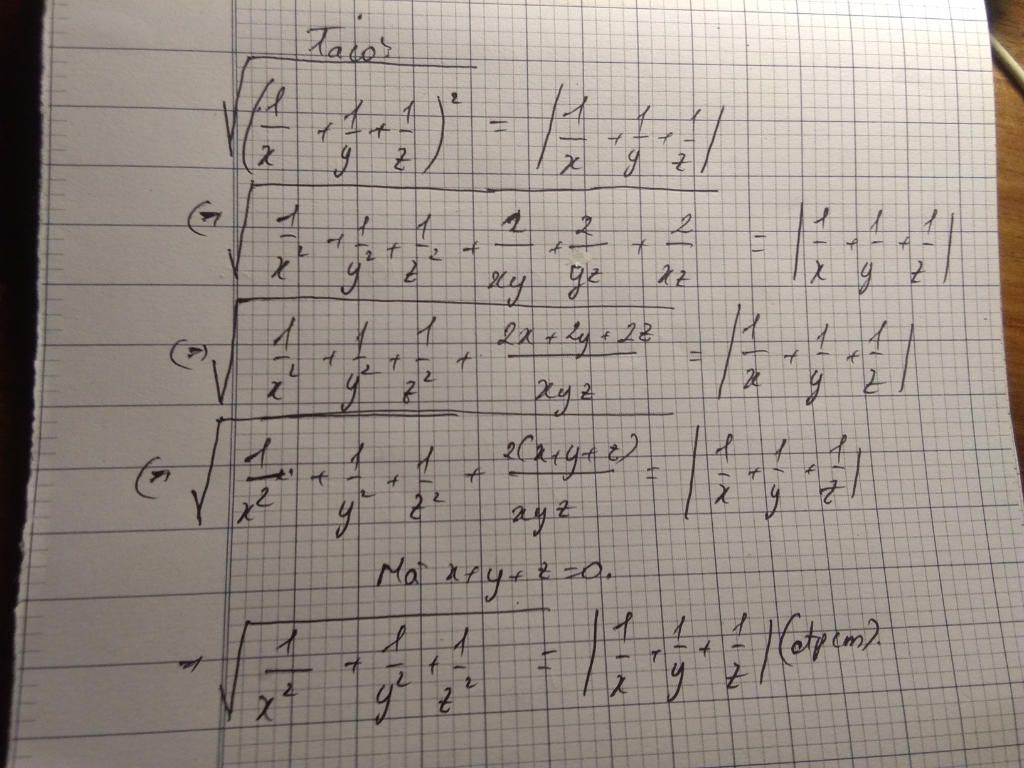 Ta có:
√((1/x + 1/y + 1/z)²) = |1/x + 1/y + 1/z|
(=) √(1/x² + 1/y² + 1/z² + 2/xy + 2/yz + 2/xz) = |1/x + 1/y + 1/z|
(=) √(1/x² + 1/y² + 1/z² + (2x+2y+2z)/xyz) = |1/x + 1/y + 1/z|
(=) √(1/x² + 1/y² + 1/z² + 2(x+y+z)/xyz) = |1/x + 1/y + 1/z|
Mà x+y+z=0.
→ √(1/x² + 1/y² + 1/z²) = |1/x + 1/y + 1/z| (đpcm).